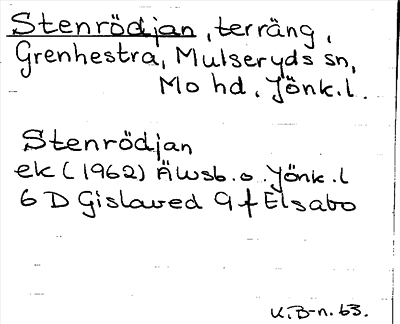 Stenrödjan, terräng,
Grenhestra, Mulseryds sn,
Mo hd, Jönk.l.
Stenrödjan
ek (1962) Älvsb. o. Jönk.l
6 D Gislaved 9 f Elsabo
K.B-n. 63.